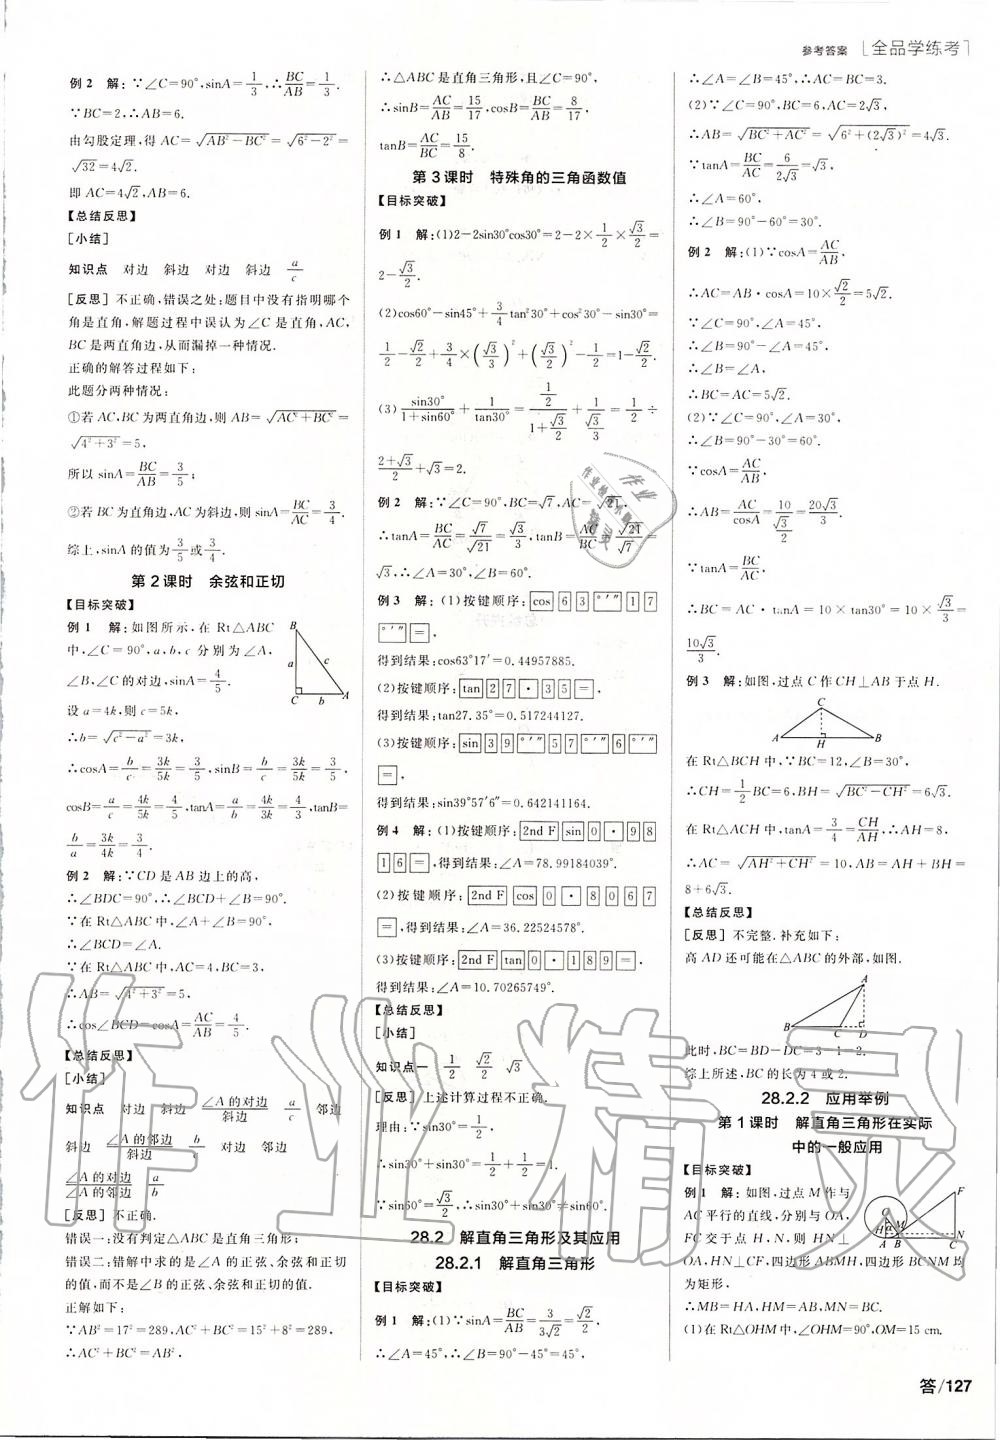 参考答案 [全品学练考]
例2 解:∵∠C=90°,sinA=1/3,∴BC/AB=1/3.
∵BC=2,∴AB=6.
由勾股定理,得AC=√(AB²-BC²)=√(6²-2²)=
√32=4√2.
即AC=4√2,AB=6.
【总结反思】
[小结]
知识点 对边 斜边 对边 斜边 a/c
[反思] 不正确,错误之处:题目中没有指明哪个
角是直角,解题过程中误认为∠C是直角,AC,
BC是两直角边,从而漏掉一种情况.
正确的解答过程如下:
此题分两种情况:
①若AC,BC为两直角边,则AB=√(AC²+BC²)=
√(4²+3²)=5,
所以sinA=BC/AB=3/5;
②若BC为直角边,AC为斜边,则sinA=BC/AC=3/4.
综上,sinA的值为3/5或3/4.
第2课时 余弦和正切
【目标突破】
例1 解:如图所示,在Rt△ABC
中,∠C=90°,a,b,c分别为∠A,
∠B,∠C的对边,sinA=4/5.
设a=4k,则c=5k,
∴b=√(c²-a²)=3k,
B
a c
C b A
∴cosA=b/c=3k/5k=3/5,sinB=b/c=3k/5k=3/5,
cosB=a/c=4k/5k=4/5,tanA=a/b=4k/3k=4/3,tanB=
b/a=3k/4k=3/4.
例2 解:∵CD是AB边上的高,
∴∠BDC=90°,∴∠BCD+∠B=90°.
∵在Rt△ABC中,∠A+∠B=90°,
∴∠BCD=∠A.
∵在Rt△ABC中,AC=4,BC=3,
∴AB=√(4²+3²)=5,
∴cos∠BCD=cosA=AC/AB=4/5.
【总结反思】
[小结]
知识点 对边 斜边 ∠A的对边/斜边 a/c 邻边
斜边 ∠A的邻边/斜边 b/c 对边 邻边
∠A的对边/∠A的邻边 a/b
[反思] 不正确.
错误一:没有判定△ABC是直角三角形;
错误二:错解中求的是∠A的正弦、余弦和正切
的值,而不是∠B的正弦、余弦和正切的值.
正解如下:
∵AB²=17²=289,AC²+BC²=15²+8²=289,
∴AC²+BC²=AB²,
∴△ABC是直角三角形,且∠C=90°,
∴sinB=AC/AB=15/17,cosB=BC/AB=8/17,
tanB=AC/BC=15/8.
第3课时 特殊角的三角函数值
【目标突破】
例1 解:(1)2-2sin30°cos30°=2-2×1/2×√3/2=
2-√3/2.
(2)cos60°-sin45°+3/4tan²30°+cos²30°-sin30°=
1/2-√2/2+3/4×(√3/3)²+(√3/2)²-1/2=1-√2/2.
(3)sin30°/(1+sin60°)+1/tan30°=(1/2)/(1+√3/2)+1/(√3/3)=1/2÷
(2+√3)/2+√3=2.
例2 解:∵∠C=90°,BC=√7,AC=√21,
∴tanA=BC/AC=√7/√21=√3/3,tanB=AC/BC=√21/√7=
√3,∴∠A=30°,∠B=60°.
例3 解:(1)按键顺序:cos 6 3 °′″ 1 7
°′″ =,
得到结果:cos63°17′=0.44957885.
(2)按键顺序:tan 2 7 · 3 5 =,
得到结果:tan27.35°=0.517244127.
(3)按键顺序:sin 3 9 °′″ 5 7 °′″ 6 °′″
=,
得到结果:sin39°57′6″=0.642141164.
例4 解:(1)按键顺序:2nd F sin 0 · 9 8
1 6 =,得到结果:∠A=78.99184039°.
(2)按键顺序:2nd F cos 0 · 8 0 6 7
=,得到结果:∠A=36.22524578°.
(3)按键顺序:2nd F tan 0 · 1 8 9 =,
得到结果:∠A=10.70265749°.
【总结反思】
[小结]
知识点一 1/2 √2/2 √3
[反思] 上述计算过程不正确.
理由:∵sin30°=1/2,
∴sin30°+sin30°=1/2+1/2=1.
∵sin60°=√3/2,∴sin30°+sin30°≠sin60°.
28.2 解直角三角形及其应用
28.2.1 解直角三角形
【目标突破】
例1 解:(1)∵sinA=BC/AB=3/(3√2)=√2/2,
∴∠A=45°,∴∠B=90°-∠A=45°,
∴∠A=∠B=45°,∴AC=BC=3.
(2)∵∠C=90°,BC=6,AC=2√3,
∴AB=√(BC²+AC²)=√(6²+(2√3)²)=4√3.
∵tanA=BC/AC=6/(2√3)=√3,
∴∠A=60°,
∴∠B=90°-60°=30°.
例2 解:(1)∵cosA=AC/AB,
∴AC=AB·cosA=10×√2/2=5√2.
∵∠C=90°,∠A=45°,
∴∠B=90°-∠A=45°,
∴∠B=∠A,
∴BC=AC=5√2.
(2)∵∠C=90°,∠A=30°,
∴∠B=90°-30°=60°.
∵cosA=AC/AB,
∴AB=AC/cosA=10/(√3/2)=20√3/3.
∵tanA=BC/AC,
∴BC=AC·tanA=10×tan30°=10×√3/3=
10√3/3.
例3 解:如图,过点C作CH⊥AB于点H.
C
A H B
在Rt△BCH中,∵BC=12,∠B=30°,
∴CH=1/2BC=6,BH=√(BC²-CH²)=6√3.
在Rt△ACH中,tanA=3/4=CH/AH,∴AH=8,
∴AC=√(AH²+CH²)=10,AB=AH+BH=
8+6√3.
【总结反思】
[反思] 不完整.补充如下:
高AD还可能在△ABC的外部,如图.
A
B C D
此时,BC=BD-DC=3-1=2.
综上所述,BC的长为4或2.
28.2.2 应用举例
第1课时 解直角三角形在实际
中的一般应用
【目标突破】
例1 解:如图,过点M作与
AC平行的直线,分别与OA,
FC交于点H,N,则HN⊥
OA,HN⊥CF,四边形ABMH,四边形BCNM均
为矩形.
∴MB=HA,HM=AB,MN=BC.
(1)在Rt△OHM中,∠OHM=90°,OM=15 cm.
答/127
作业精灵